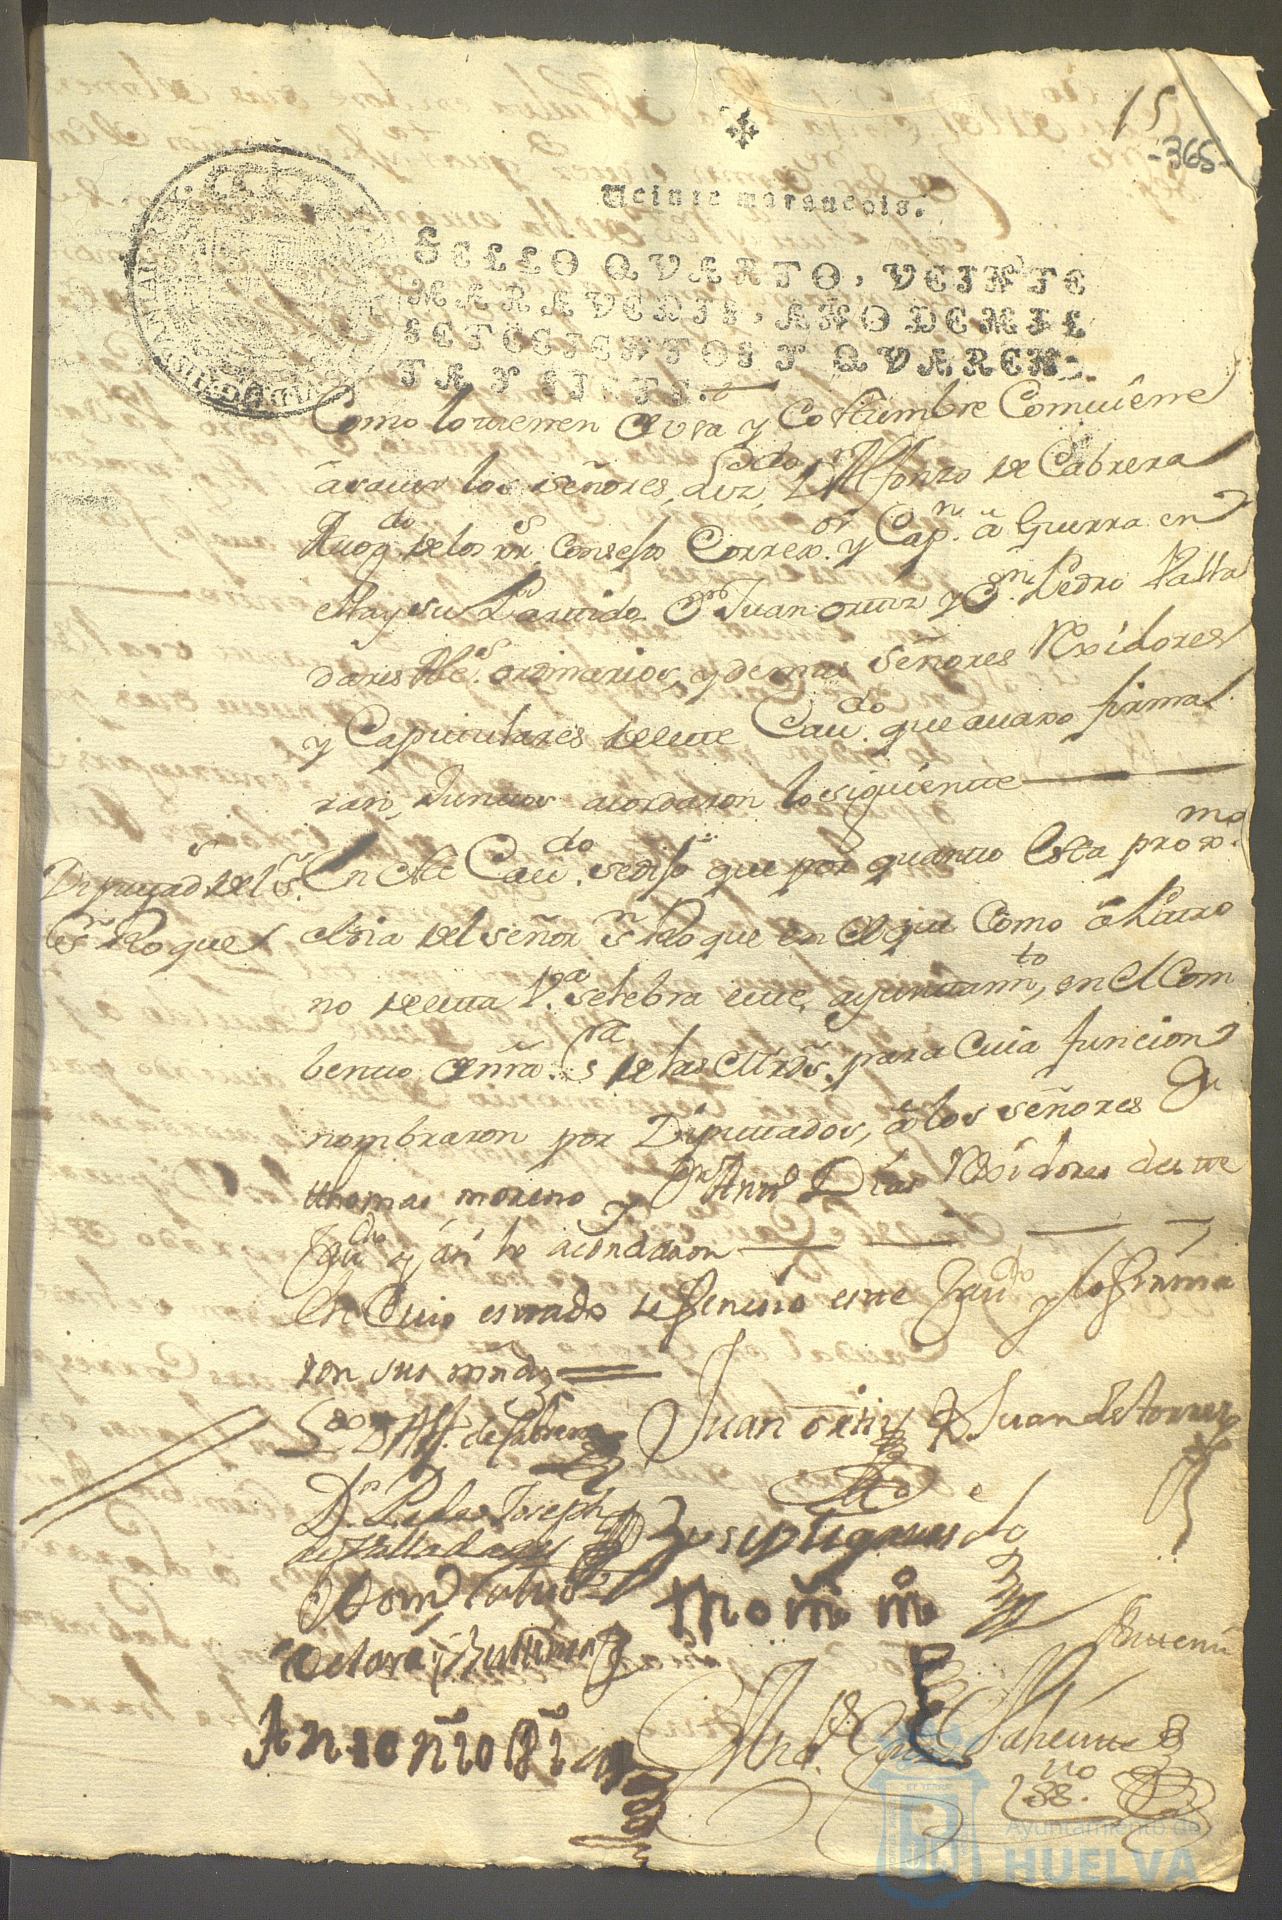 15
-365-
Veinte marauedis.
SELLO QVARTO, VEINTE
MARAVEDIS, AÑO DE MIL
SETECIENTOS Y QVAREN-
TA Y SIETE.
Como lo tienen de vso y Costumbre Comuiene
a sauer los señores Lizdo Dn Alfonzo de Cabrera
Auogdo de los Rs Consejos Correxor y Capn â Guerra en
esta y su Partido, Dn Juan ortiz y Dn Pedro Valla
dares Alces ordinarios, y demas señores Rexidores
y Capitulares de este Caudo que auaxo firma
ran, Juntos acordaron lo siguiente
Diputads del Sr
Sn Roque
En este Caudo se dijo que por quanto esta proxma
el dia del señor Sn Roque en el qual Como â Patro
no de esta Va selebra este, ayuntamto, en el Com
bento de nra Sra de las Mrds para Cuia funcion
nombraron por Diputados, â los señores Dn
thomas moreno y Dn Antto Dias Rexidores de este
Caudo y asi lo acordaron
En Cuio estado se feneció este Caudo y lo firma
ron sus mrds
Lizdo D Alf. de Cabrera
Juan ortiz
D Juan de torres
Dn Pedro Joseph
de Valladares
Antonio Di
Antemi
Ayuntamiento de
HUELVA